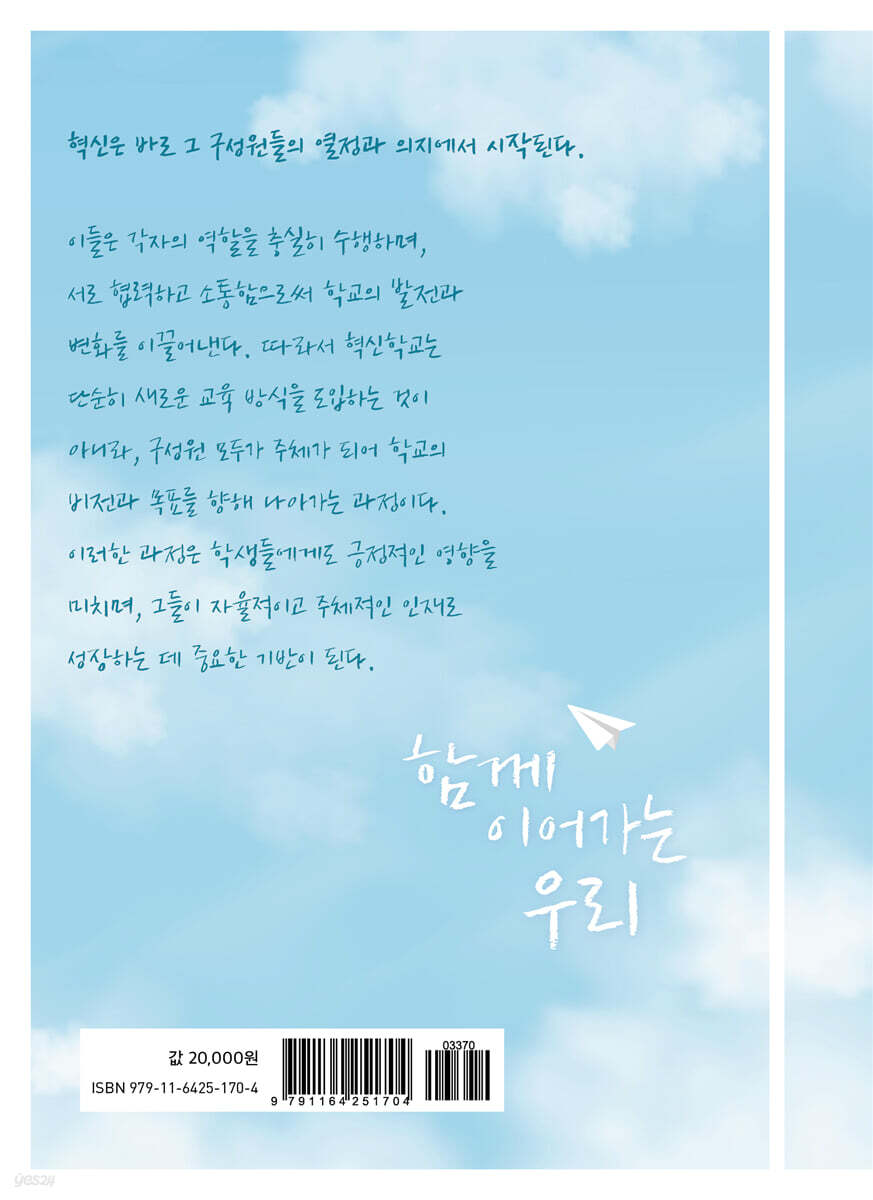 혁신은 바로 그 구성원들의 열정과 의지에서 시작된다.
이들은 각자의 역할을 충실히 수행하며,
서로 협력하고 소통함으로써 학교의 발전과
변화를 이끌어낸다. 따라서 혁신학교는
단순히 새로운 교육 방식을 도입하는 것이
아니라, 구성원 모두가 주체가 되어 학교의
비전과 목표를 향해 나아가는 과정이다.
이러한 과정은 학생들에게도 긍정적인 영향을
미치며, 그들이 자율적이고 주체적인 인재로
성장하는 데 중요한 기반이 된다.
함께
이어가는
우리
값 20,000원
ISBN 979-11-6425-170-4
03370
9 791164 251704
yes24